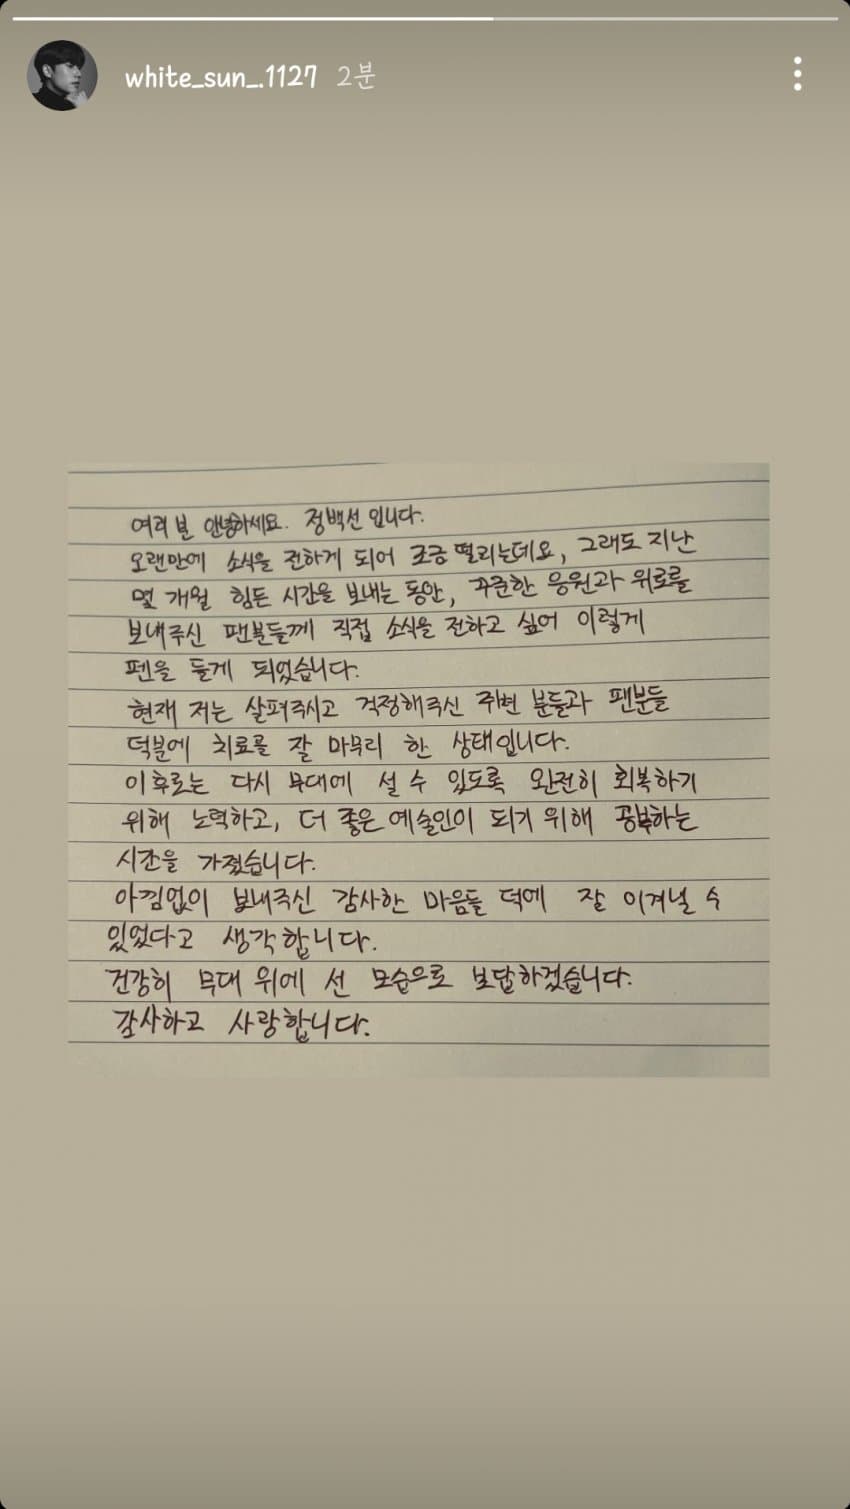 white_sun_.1127 2분
여러분 안녕하세요. 정백선입니다.
오랜만에 소식을 전하게 되어 조금 떨리는데요, 그래도 지난
몇 개월 힘든 시간을 보내는 동안, 꾸준한 응원과 위로를
보내주신 팬분들께 직접 소식을 전하고 싶어 이렇게
펜을 들게 되었습니다.
현재 저는 살펴주시고 걱정해주신 주변 분들과 팬분들
덕분에 치료를 잘 마무리 한 상태입니다.
이후로는 다시 무대에 설 수 있도록 완전히 회복하기
위해 노력하고, 더 좋은 예술인이 되기 위해 공부하는
시간을 가졌습니다.
아낌없이 보내주신 감사한 마음들 덕에 잘 이겨낼 수
있었다고 생각합니다.
건강히 무대 위에 선 모습으로 보답하겠습니다.
감사하고 사랑합니다.